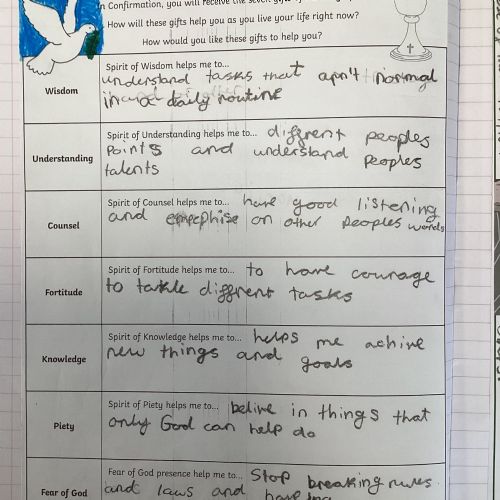 n Confirmation, you will receive the seven
How will these gifts help you as you live your life right now?
How would you like these gifts to help you?
Wisdom
Spirit of Wisdom helps me to...
understand tasks that arn't normal
in a daily routine
Understanding
Spirit of Understanding helps me to... different peoples
Points and understand peoples
talents
Counsel
Spirit of Counsel helps me to... have good listening
and emephise on other peoples words
Fortitude
Spirit of Fortitude helps me to... to have courage
to takle different tasks
Knowledge
Spirit of Knowledge helps me to... helps me achive
new things and goals
Piety
Spirit of Piety helps me to... belive in things that
only God can help do
Fear of God
Fear of God presence help me to... Stop breaking rules
and laws and